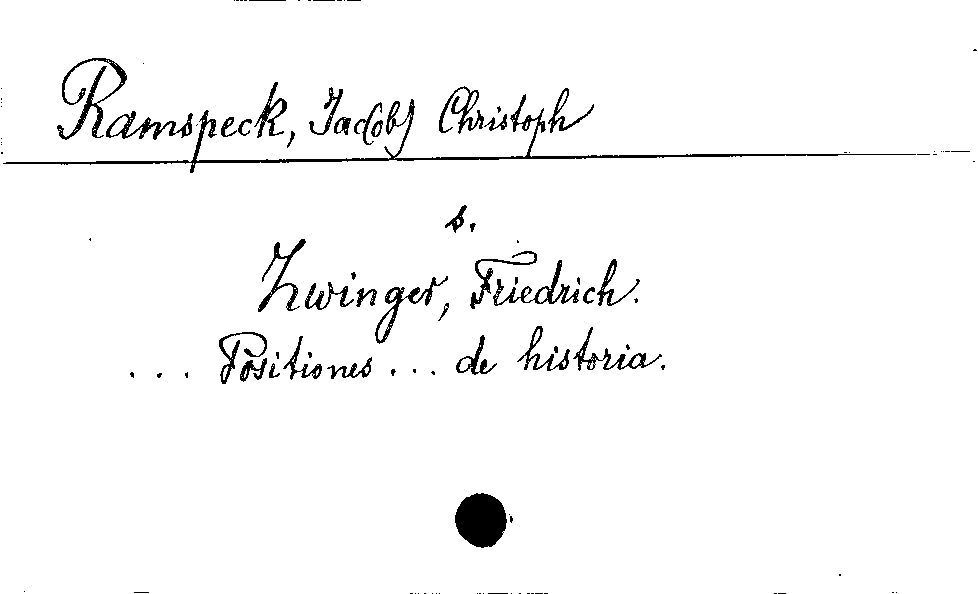 Ramspeck, Jac(ob) Christoph
s.
Zwinger, Friedrich.
... Positiones ... de historia.